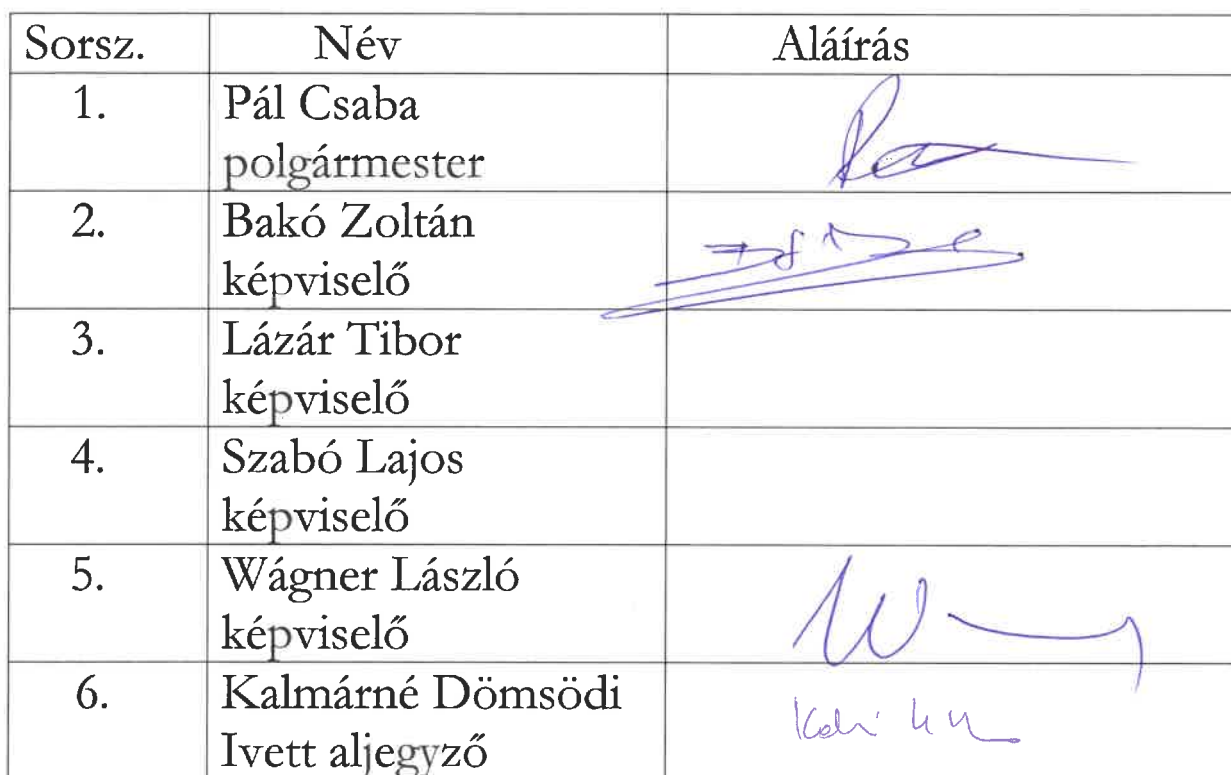 Sorsz. Név Aláírás
1. Pál Csaba
polgármester
2. Bakó Zoltán
képviselő
3. Lázár Tibor
képviselő
4. Szabó Lajos
képviselő
5. Wágner László
képviselő
6. Kalmárné Dömsödi
Ivett aljegyző